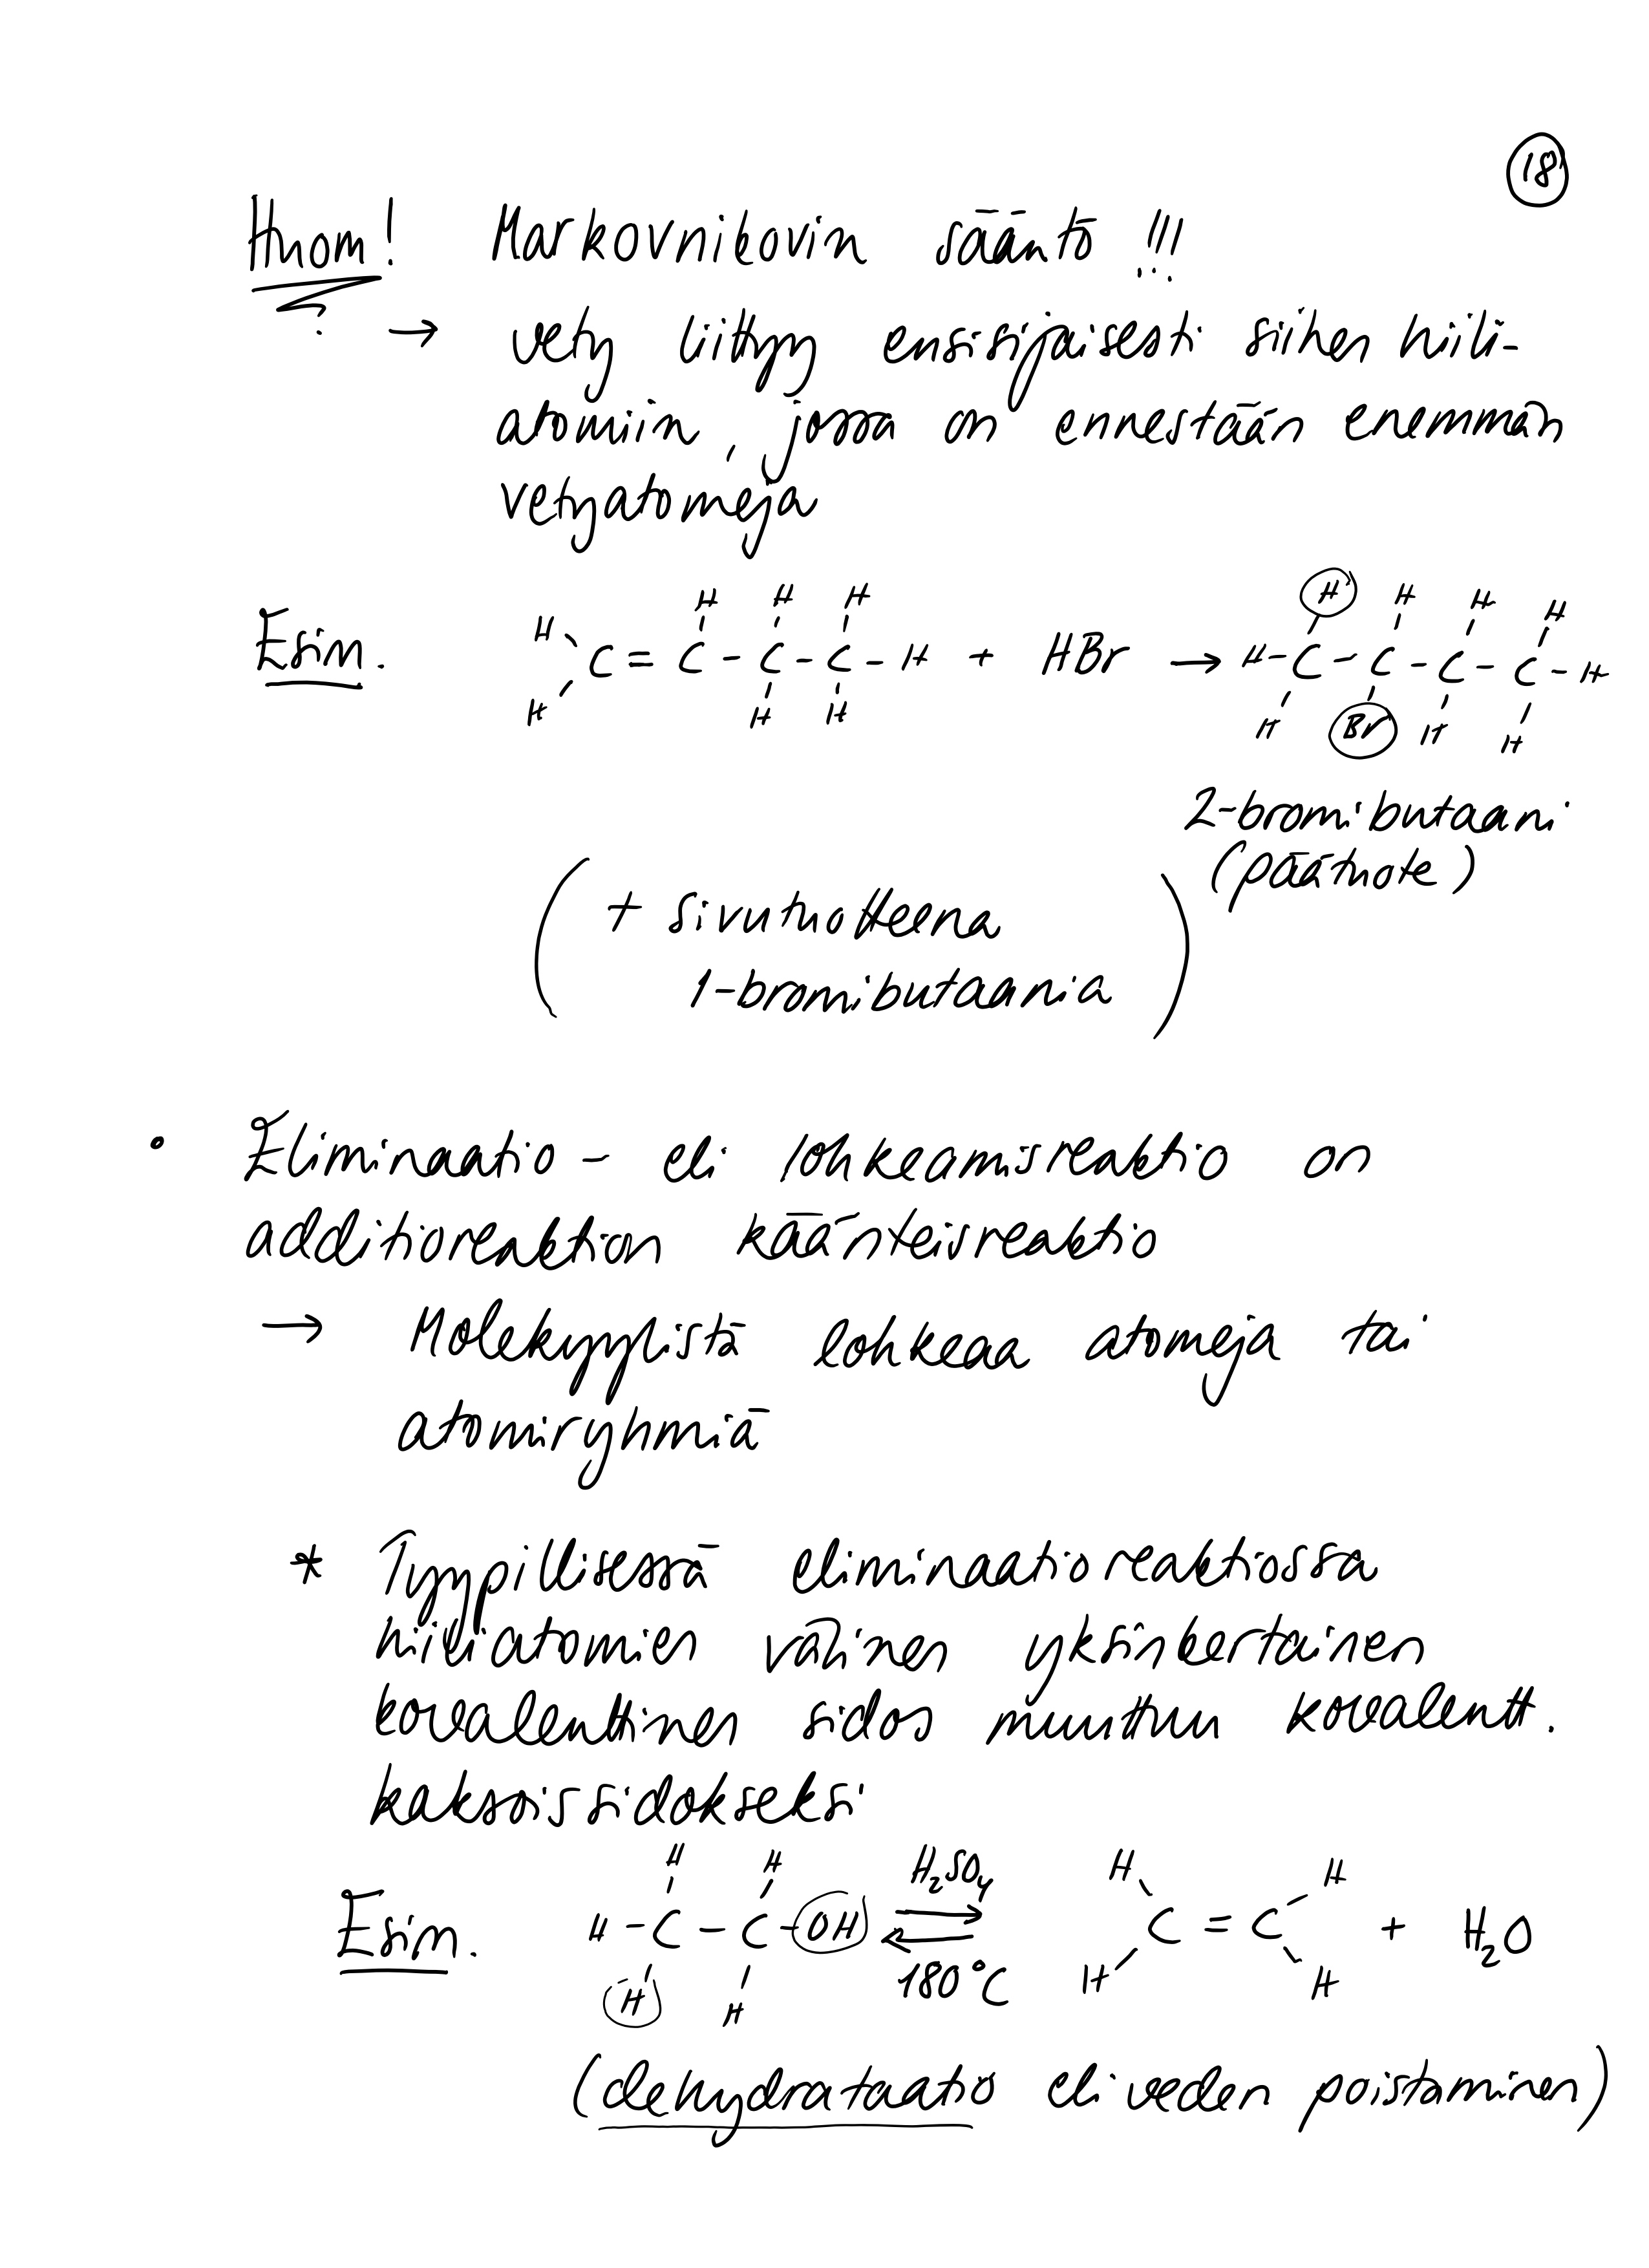 18
Huom! Markovnikovin sääntö !!!
→ vety liittyy ensisijaisesti siihen hiili-
atomiin, jossa on ennestään enemmän
vetyatomeja
H H H H H H H
Esin. C = C - C - C - H + HBr → H - C - C - C - C - H
H H H H Br H H
2-bromibutaani
(päätuote)
( + sivutuotteena
1-bromibutaania )
• Eliminaatio - eli lohkeamisreaktio on
additioreaktion käänteisreaktio
→ Molekyylistä lohkeaa atomeja tai
atomiryhmiä
* Tyypillisessä eliminaatioreaktiossa
hiiliatomien välinen yksinkertainen
kovalenttinen sidos muuttuu kovalentt.
kaksoissidokseksi
H H H₂SO₄ H H
Esim. H - C - C - OH ⇌ C = C + H₂O
H H 180°C H H
(dehydrataatio eli veden poistaminen)